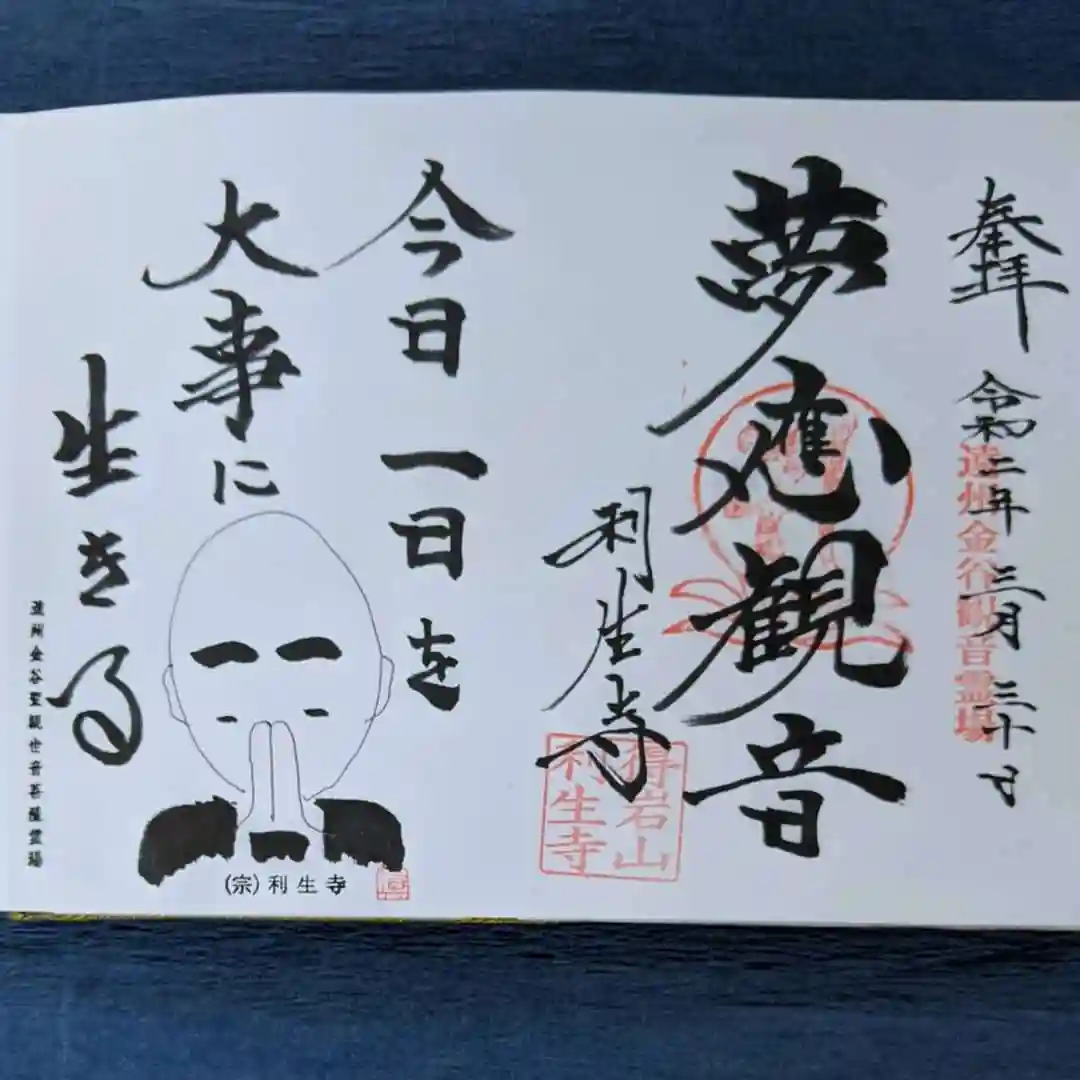 奉拝
令和二年三月三十日
遠州金谷観音霊場
夢應観音
利生寺
得岩山
利生寺
今日一日を
大事に
生きる
(宗)利生寺
遠州金谷聖観世音菩薩霊場